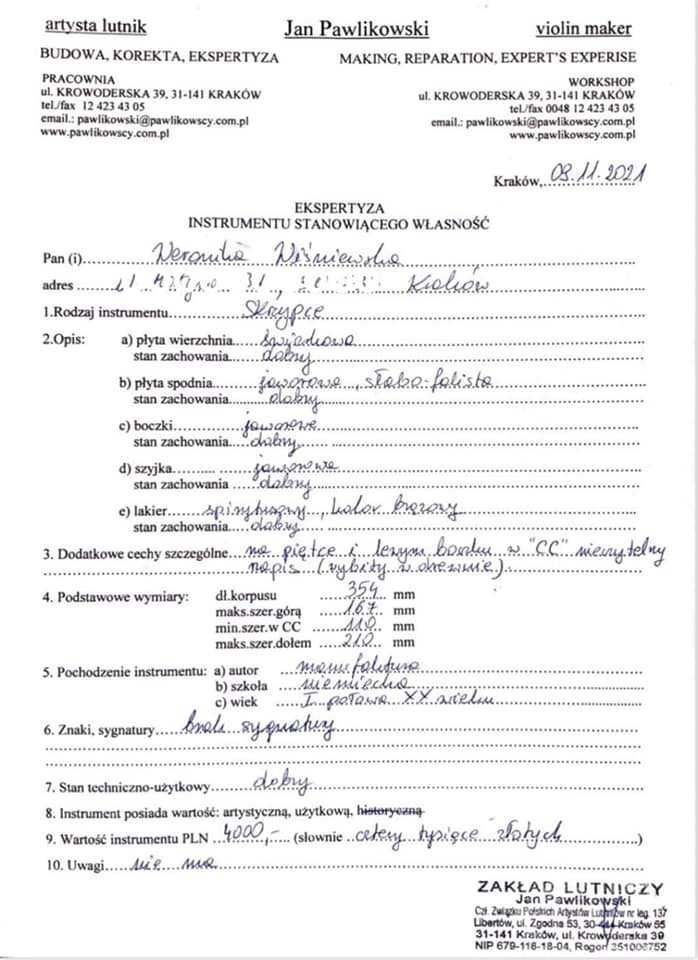 artysta lutnik Jan Pawlikowski violin maker
BUDOWA, KOREKTA, EKSPERTYZA MAKING, REPARATION, EXPERT'S EXPERISE
PRACOWNIA WORKSHOP
ul. KROWODERSKA 39, 31-141 KRAKÓW ul. KROWODERSKA 39, 31-141 KRAKÓW
tel./fax 12 423 43 05 tel./fax 0048 12 423 43 05
email.: pawlikowski@pawlikowscy.com.pl email.: pawlikowski@pawlikowscy.com.pl
www.pawlikowscy.com.pl www.pawlikowscy.com.pl
Kraków, 09.11.2021
EKSPERTYZA
INSTRUMENTU STANOWIĄCEGO WŁASNOŚĆ
Pan (i) Weronika Wiśniewska
adres 31, Kraków
1.Rodzaj instrumentu Skrzypce
2.Opis: a) płyta wierzchnia świerkowa
stan zachowania dobry
b) płyta spodnia jaworowa, słabo-falista
stan zachowania dobry
c) boczki jaworowe
stan zachowania dobry
d) szyjka jaworowa
stan zachowania dobry
e) lakier spirytusowy, kolor brązowy
stan zachowania dobry
3. Dodatkowe cechy szczególne na piętce i lewym boczku w "CC" nieczytelny
napis (wybity w drewnie)
4. Podstawowe wymiary: dł.korpusu 354 mm
maks.szer.górą 167 mm
min.szer.w CC 110 mm
maks.szer.dołem 210 mm
5. Pochodzenie instrumentu: a) autor manufaktura
b) szkoła niemiecka
c) wiek I połowa XX wieku
6. Znaki, sygnatury brak sygnatury
7. Stan techniczno-użytkowy dobry
8. Instrument posiada wartość: artystyczną, użytkową, historyczną
9. Wartość instrumentu PLN 4000,- (słownie cztery tysiące złotych)
10. Uwagi nie ma
ZAKŁAD LUTNICZY
Jan Pawlikowski
Czł. Związku Polskich Artystów Lutników nr leg. 137
Libertów, ul. Zgodna 53, 30-444 Kraków 55
31-141 Kraków, ul. Krowoderska 39
NIP 679-116-18-04, Regon 351006752